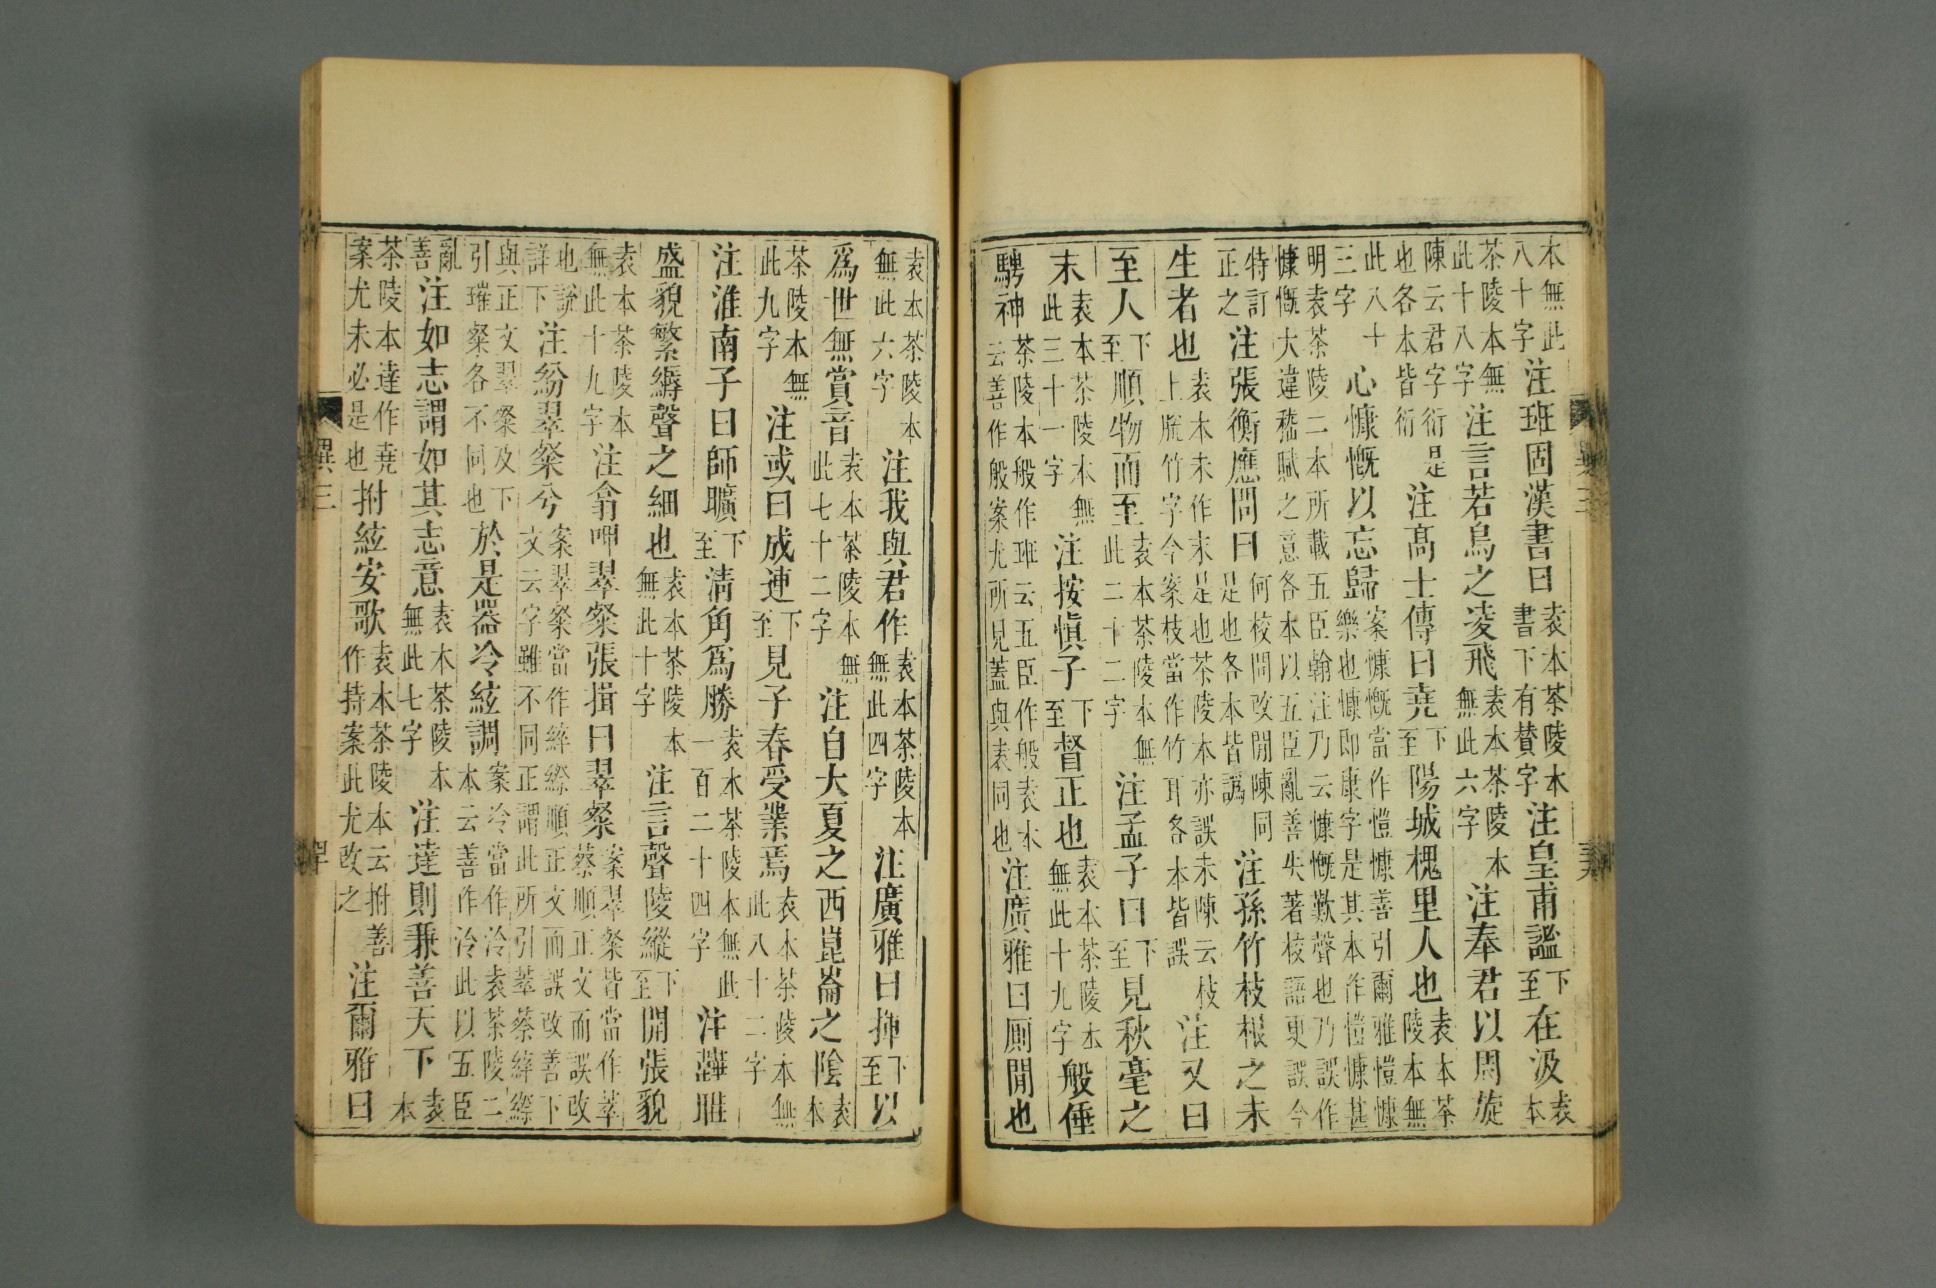 本無此八十字注班固漢書曰袁本茶陵本書下有贊字注皇甫謐下至在汲袁本
茶陵本無此十八字注言若鳥之凌飛袁本茶陵本無此六字注奉君以周旋
陳云君字衍是也各本皆衍注高士傳曰堯下至陽城槐里人也袁本茶陵本無
此八十三字心慷慨以忘歸案慷慨當作愷慷善引爾雅愷慷樂也慷即康字是其本作愷慷甚
明袁茶陵二本所載五臣翰注乃云慷慨歎聲也乃誤作慷慨大違嵇賦之意各本以五臣亂善失著校語更誤今
特訂正之注張衡應問曰何校問改閒陳同是也各本皆譌注孫竹枝根之未
生者也袁本未作末是也茶陵本亦誤未陳云枝上脫竹字今案枝當作竹耳各本皆誤注又曰
至人下至順物而至袁本茶陵本無此二十二字注孟子曰下至見秋毫之
末袁本茶陵本無此三十一字注按慎子下至督正也袁本茶陵本無此十九字般倕
騁神茶陵本般作班云五臣作般袁本云善作般案尤所見蓋與袁同也注廣雅曰厠閒也
袁本茶陵本無此六字注我與君作袁本茶陵本無此四字注廣雅曰揮下至以
爲世無賞音袁本茶陵本無此七十二字注白大夏之西崑崙之陰袁本
茶陵本無此九字注或曰成連下至見子春受業焉袁本茶陵本無此八十二字
注淮南子曰師曠下至清角爲勝袁本茶陵本無此一百二十四字注韡曄
盛貌繁縟聲之細也袁本茶陵本無此十字注言聲陵縱下至開張貌
袁本茶陵本無此十九字注翕呷翠粲張揖曰翠粲案翠粲皆當作萃蔡順正文而誤改
也說詳下注紛翠粲兮案翠粲當作綷縩順正文而誤改善下文云字雖不同正謂此所引萃蔡綷縩
與正文翠粲及下引璀粲各不同也於是器冷絃調案冷當作泠袁茶陵二本云善作泠此以五臣
亂善注如志謂如其志意袁本茶陵本無此七字注達則兼善天下袁本
茶陵本達作堯案尤未必是也拊絃安歌袁本茶陵本云拊善作持案此尤改之注爾雅曰